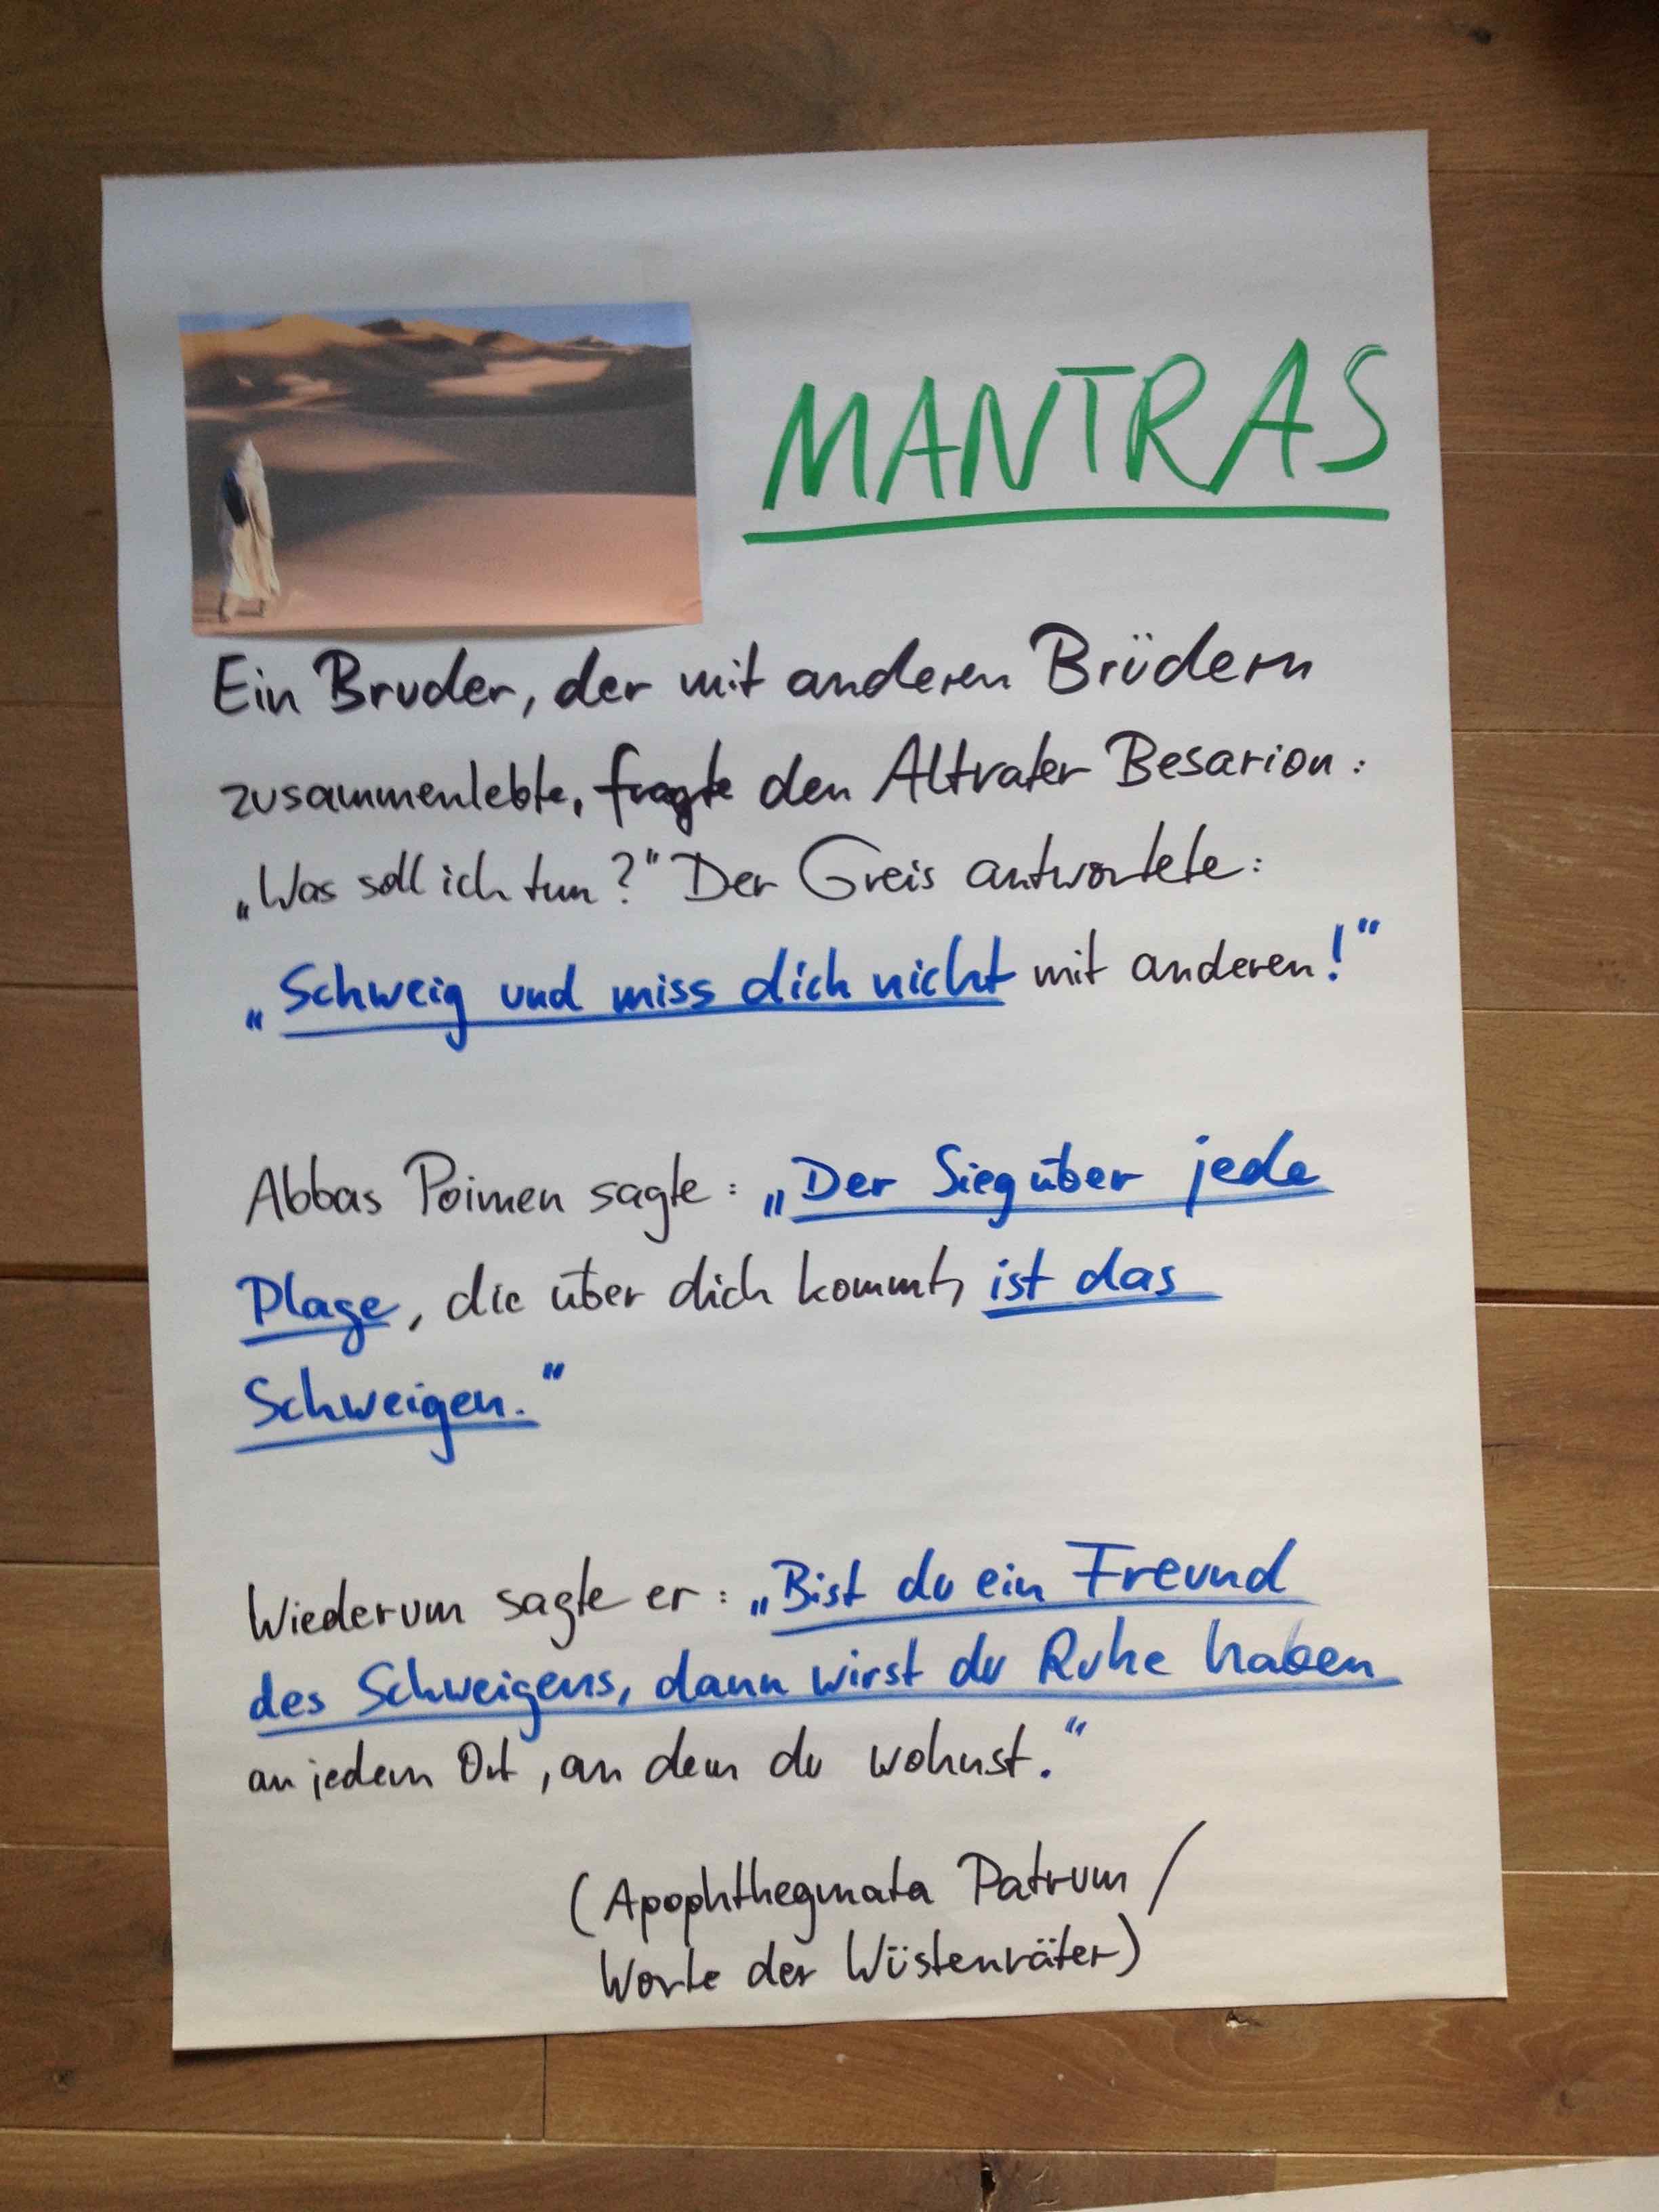 MANTRAS
Ein Bruder, der mit anderen Brüdern
zusammenlebte, fragte den Altvater Besarion:
„Was soll ich tun?" Der Greis antwortete:
„Schweig und miss dich nicht mit anderen!"
Abbas Poimen sagte: „Der Sieg über jede
Plage, die über dich kommt, ist das
Schweigen."
Wiederum sagte er: „Bist du ein Freund
des Schweigens, dann wirst du Ruhe haben
an jedem Ort, an dem du wohnst."
(Apophthegmata Patrum /
Worte der Wüstenväter)